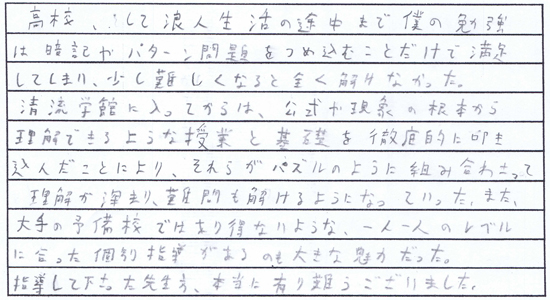 高校、そして浪人生活の途中まで僕の勉強
は暗記やパターン問題をつめ込むことだけで満足
してしまい、少し難しくなると全く解けなかった。
清流学館に入ってからは、公式や現象の根本から
理解できるような授業と基礎を徹底的に叩き
込んだことにより、それらがパズルのように組み合わさって
理解が深まり、難問も解けるようになっていった。また、
大手の予備校ではあり得ないような、一人一人のレベル
に合った個別指導があるのも大きな魅力だった。
指導して下さった先生方、本当に有り難うございました。